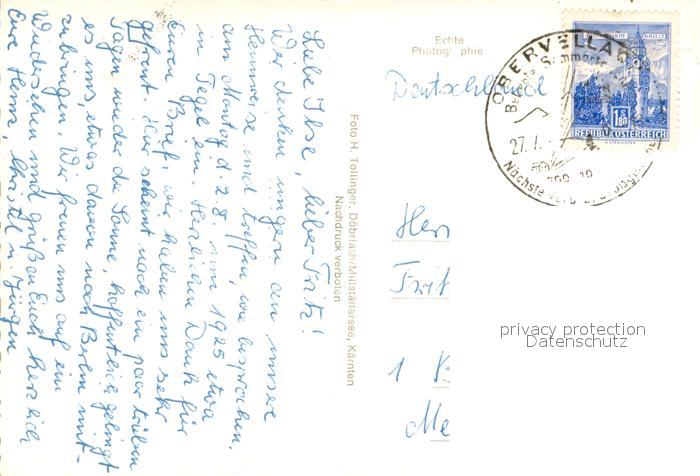 Echte
Photographie
Liebe Ilse, lieber Fritz!
Wir denken ungern an unsere
Heimreise und treffen, wie besprochen,
am Montag d. 2.8. um 1925 etwa
in Tegel ein. Herzlichen Dank für
Euren Brief, wir haben uns sehr
gefreut. Hier scheint nach ein paar trüben
Tagen wieder die Sonne, hoffentlich gelingt
es uns, etwas davon nach Berlin mit-
zubringen. Wir freuen uns auf ein
Wiedersehen und grüßen Euch herzlich
Eure Hans, Christel u. Jürgen
Foto H. Tollinger, Döbriach/Millstättersee, Kärnten
Nachdruck verboten
Deutschland
OBERVELLACH
27. 7.
1.80
REPUBLIK ÖSTERREICH
Herr
Frit
1
Me
privacy protection
Datenschutz